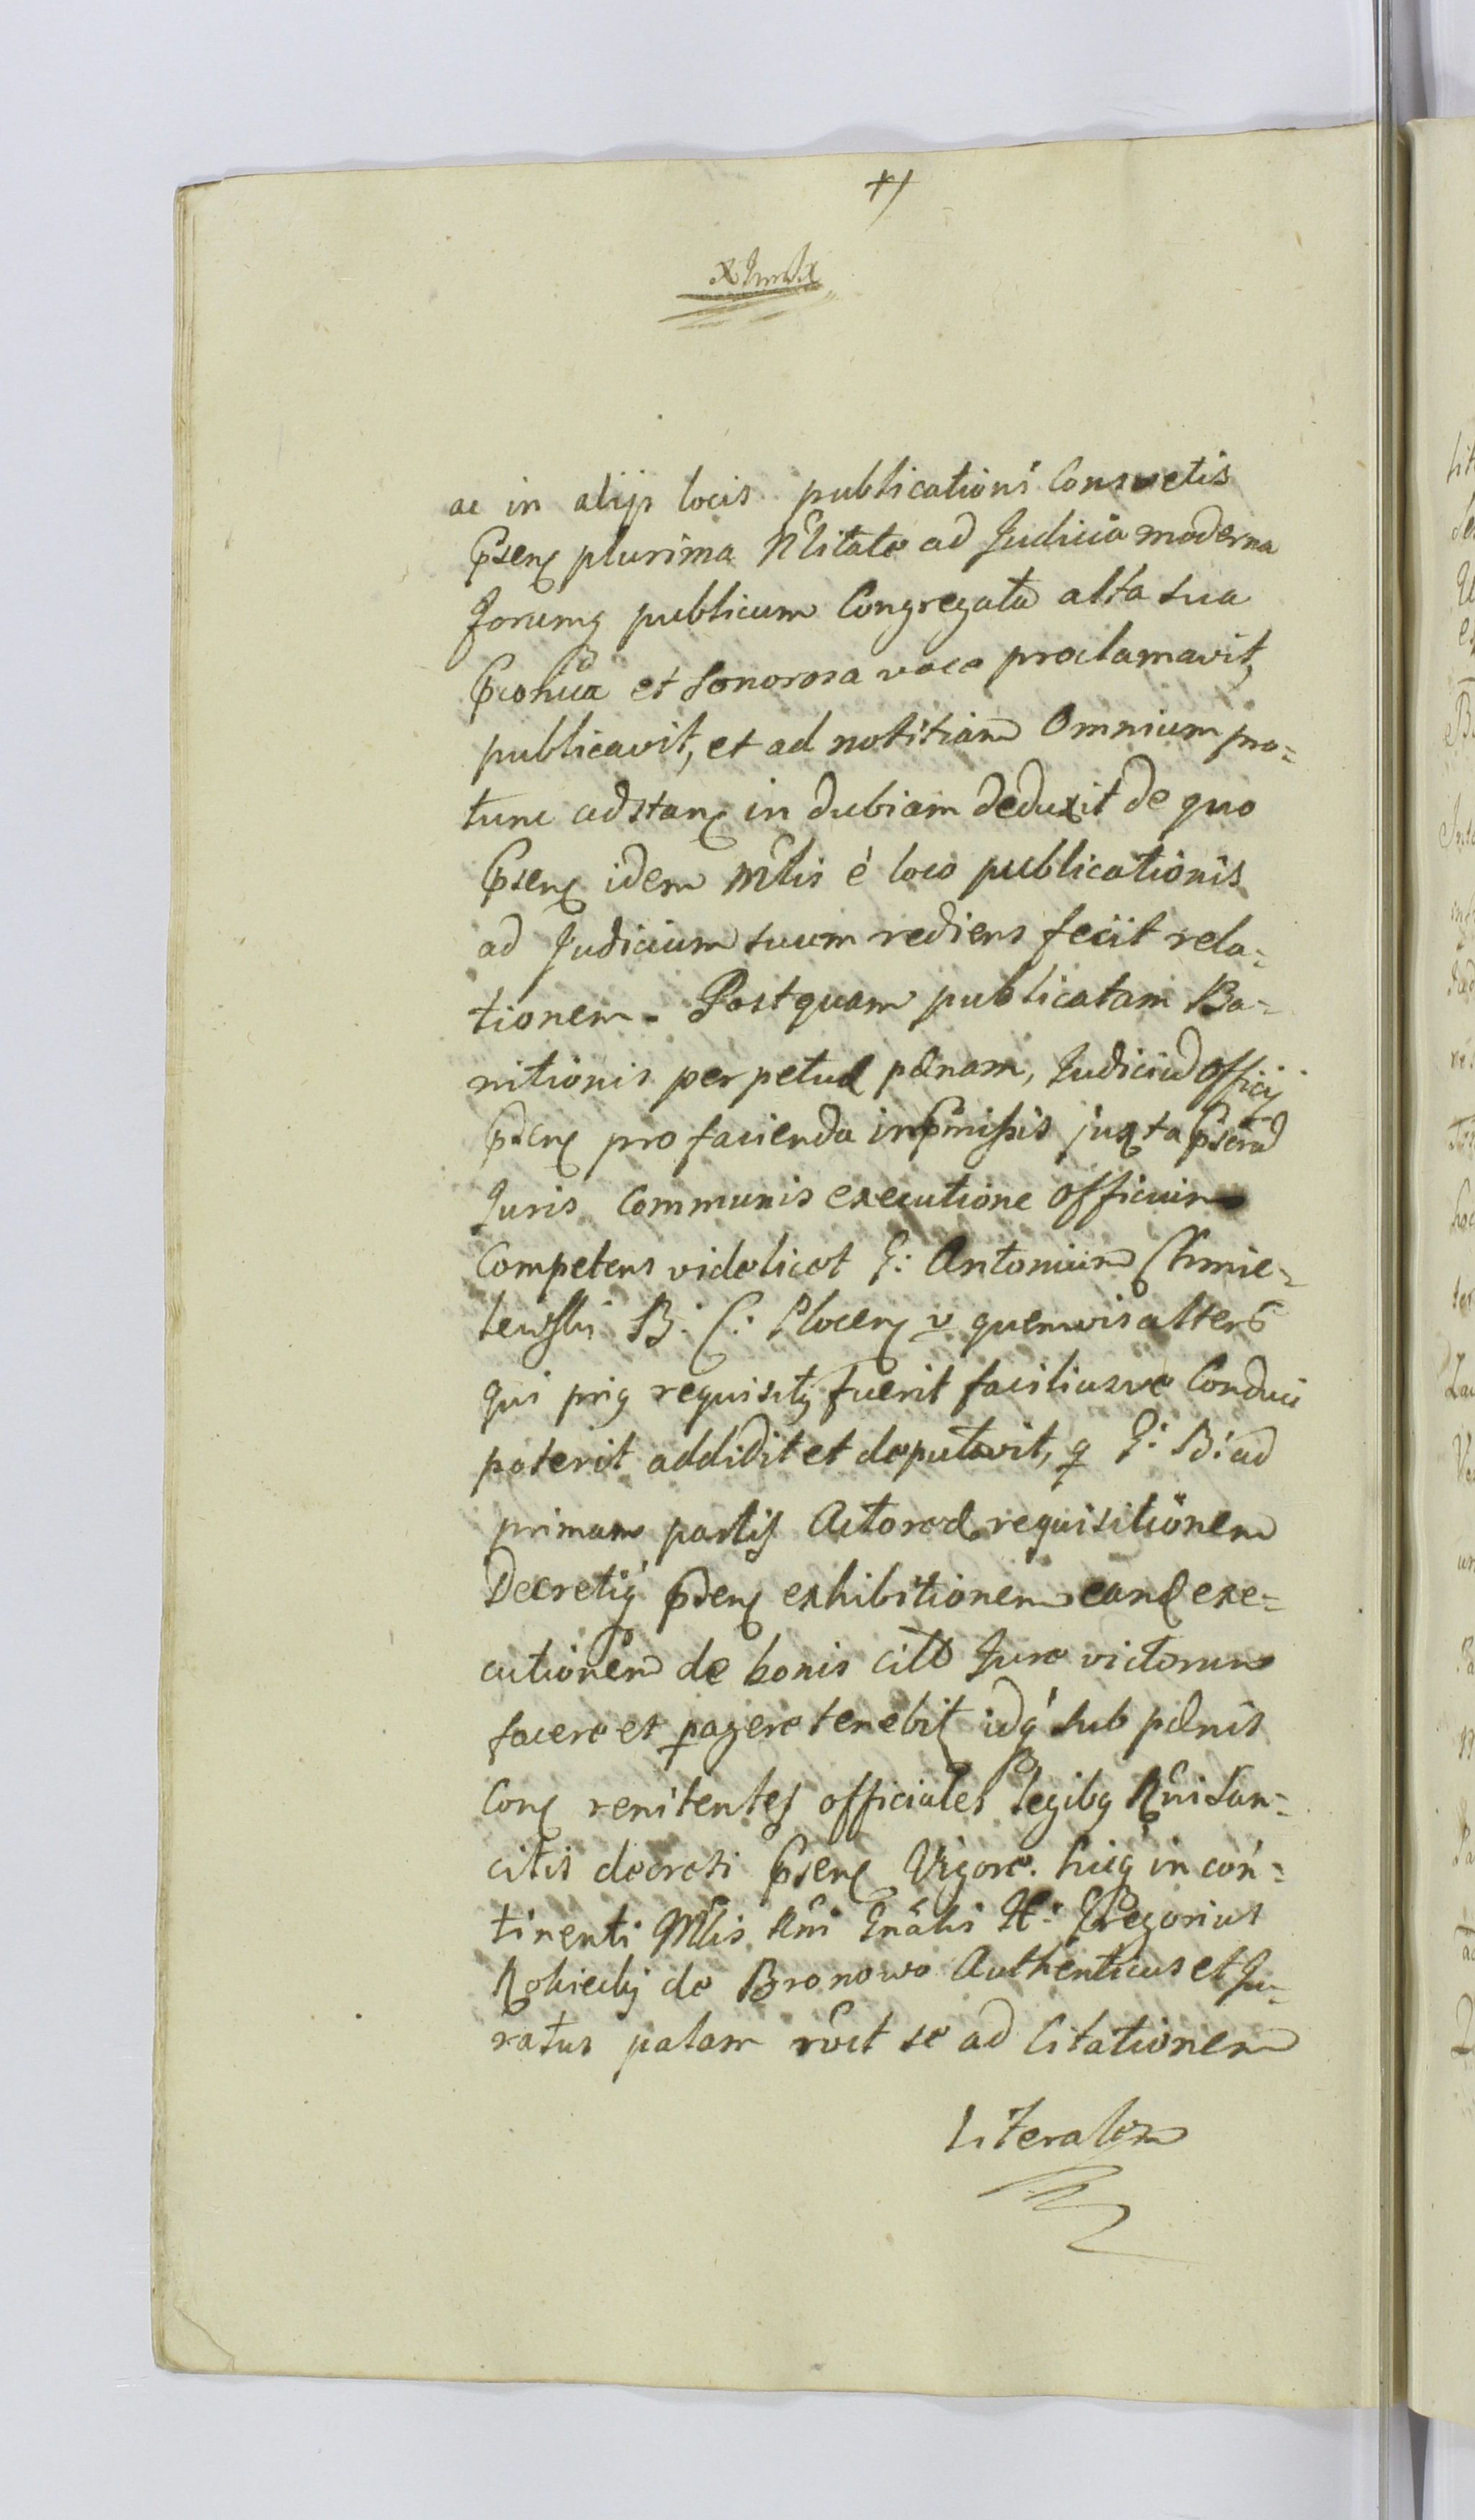 ac in alijs locis publicationi Consvetis
Psenq plurima Nlitate ad Judicia moderna
forumq publicum Congregata alta sua
Pconia et Sonorosa voce proclamavit,
publicavit, et ad notitiam Omnium pro=
tunc adstanq in dubiam deduxit de quo
Psenq idem Mlis é loco publicationis
ad Judicium suum rediens feciit rela=
tionem. Postquam publicatam Ba=
nitionis perpetuæ pænam, Judiciu Officij
Psenq pro facienda inPmissis juxta Pscrad
Juris Communis executione Officium
Competens videlicet G: Antonium Chmie=
lewski B: C: Plocenq v quemvis alterū
qui priq requisitq fuerit faciliusve Conduci
poterit addidit et deputavit, q G: B: ad
primam partis Actoreæ requisitionem
Decretiq Psenq exhibitionem eand exe=
cutionem de bonis citō Jure victorum
facere et pagere tenebit idq sub pænis
Conq renitentes officiales legibq Rni San=
citis decreti Psenq Vigore. huiq in con=
tinenti Mlis Rni Gnālis H: Gregorius
Rokicckj de Bronowo Authenticus et Ju=
ratus palam rēct se ad Citationem
Literalem